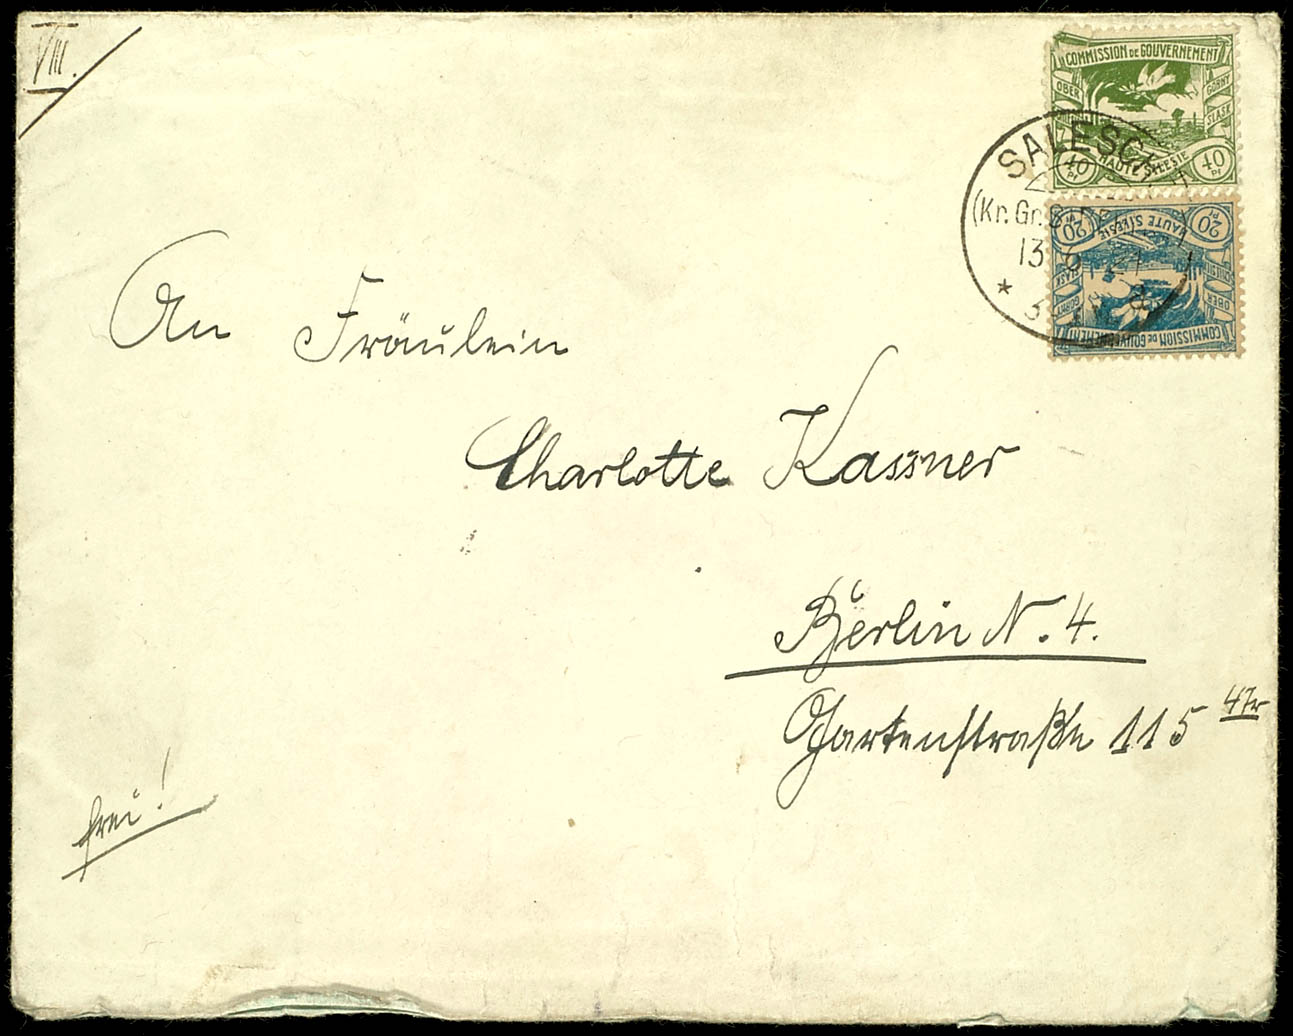 VIII.
COMMISSION DE GOUVERNEMENT
OBER
GORNY
SLASK
40 Pf
HAUTE SILESIE
40 Pf
SALESCHE
(Kr. Gr.
13.6.21
*
20 Pf
HAUTE SILESIE
20 Pf
OBER
COMMISSION DE GOUVERNEMENT
An Fräulein
Charlotte Kassner
Berlin N. 4.
Gartenstraße 115
frei!